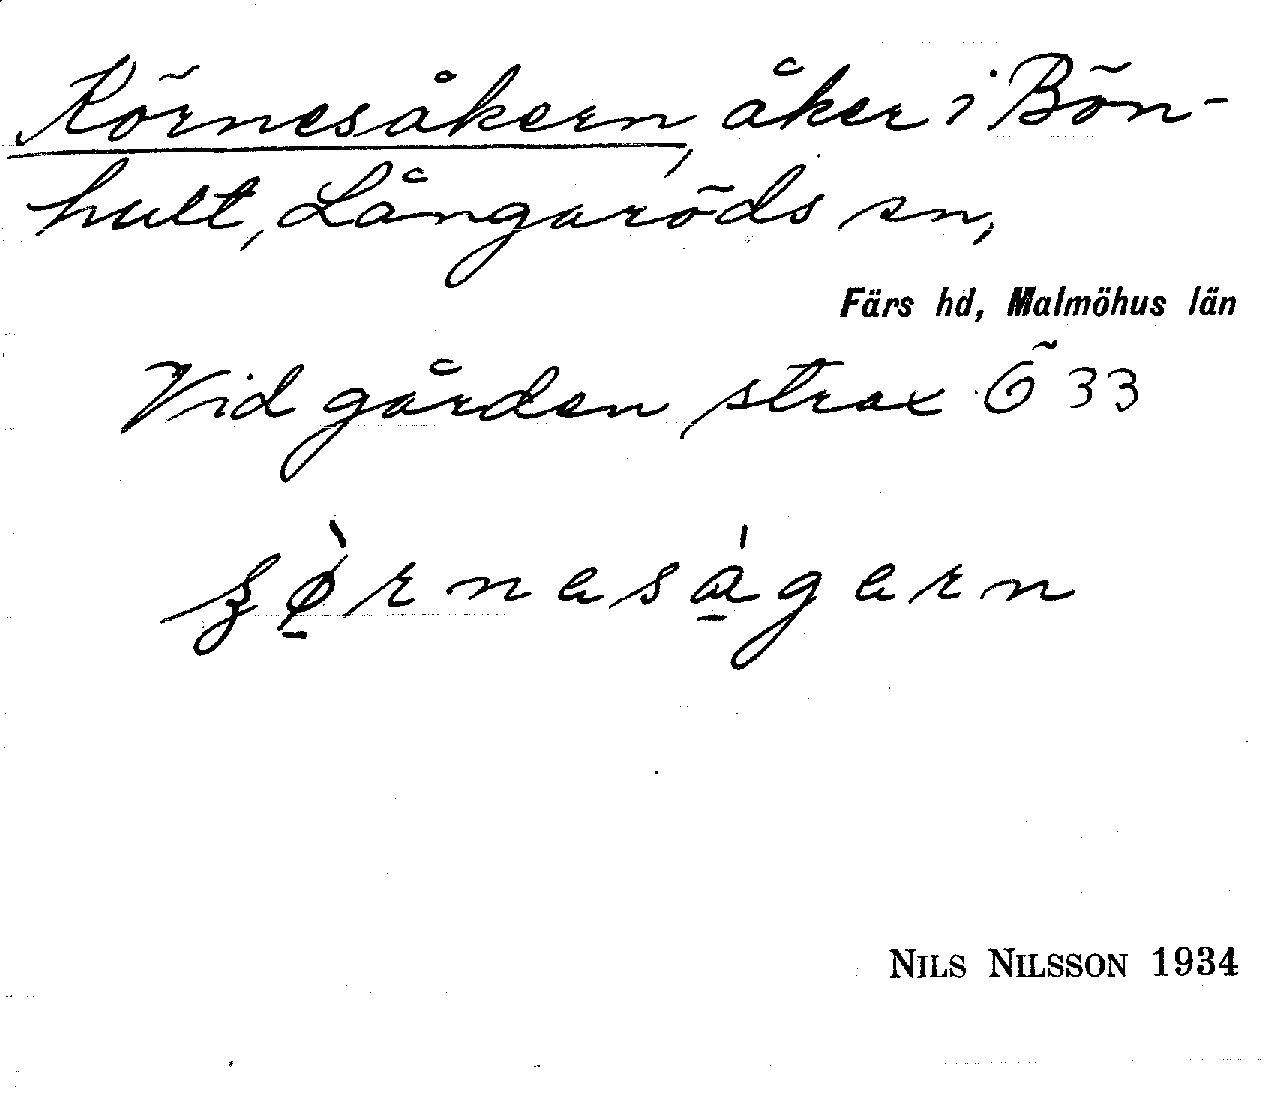 Körnesåkern, åker i Bön-
hult, Långaröds sn,
Färs hd, Malmöhus län
Vid gården strax Ö 33
NILS NILSSON 1934